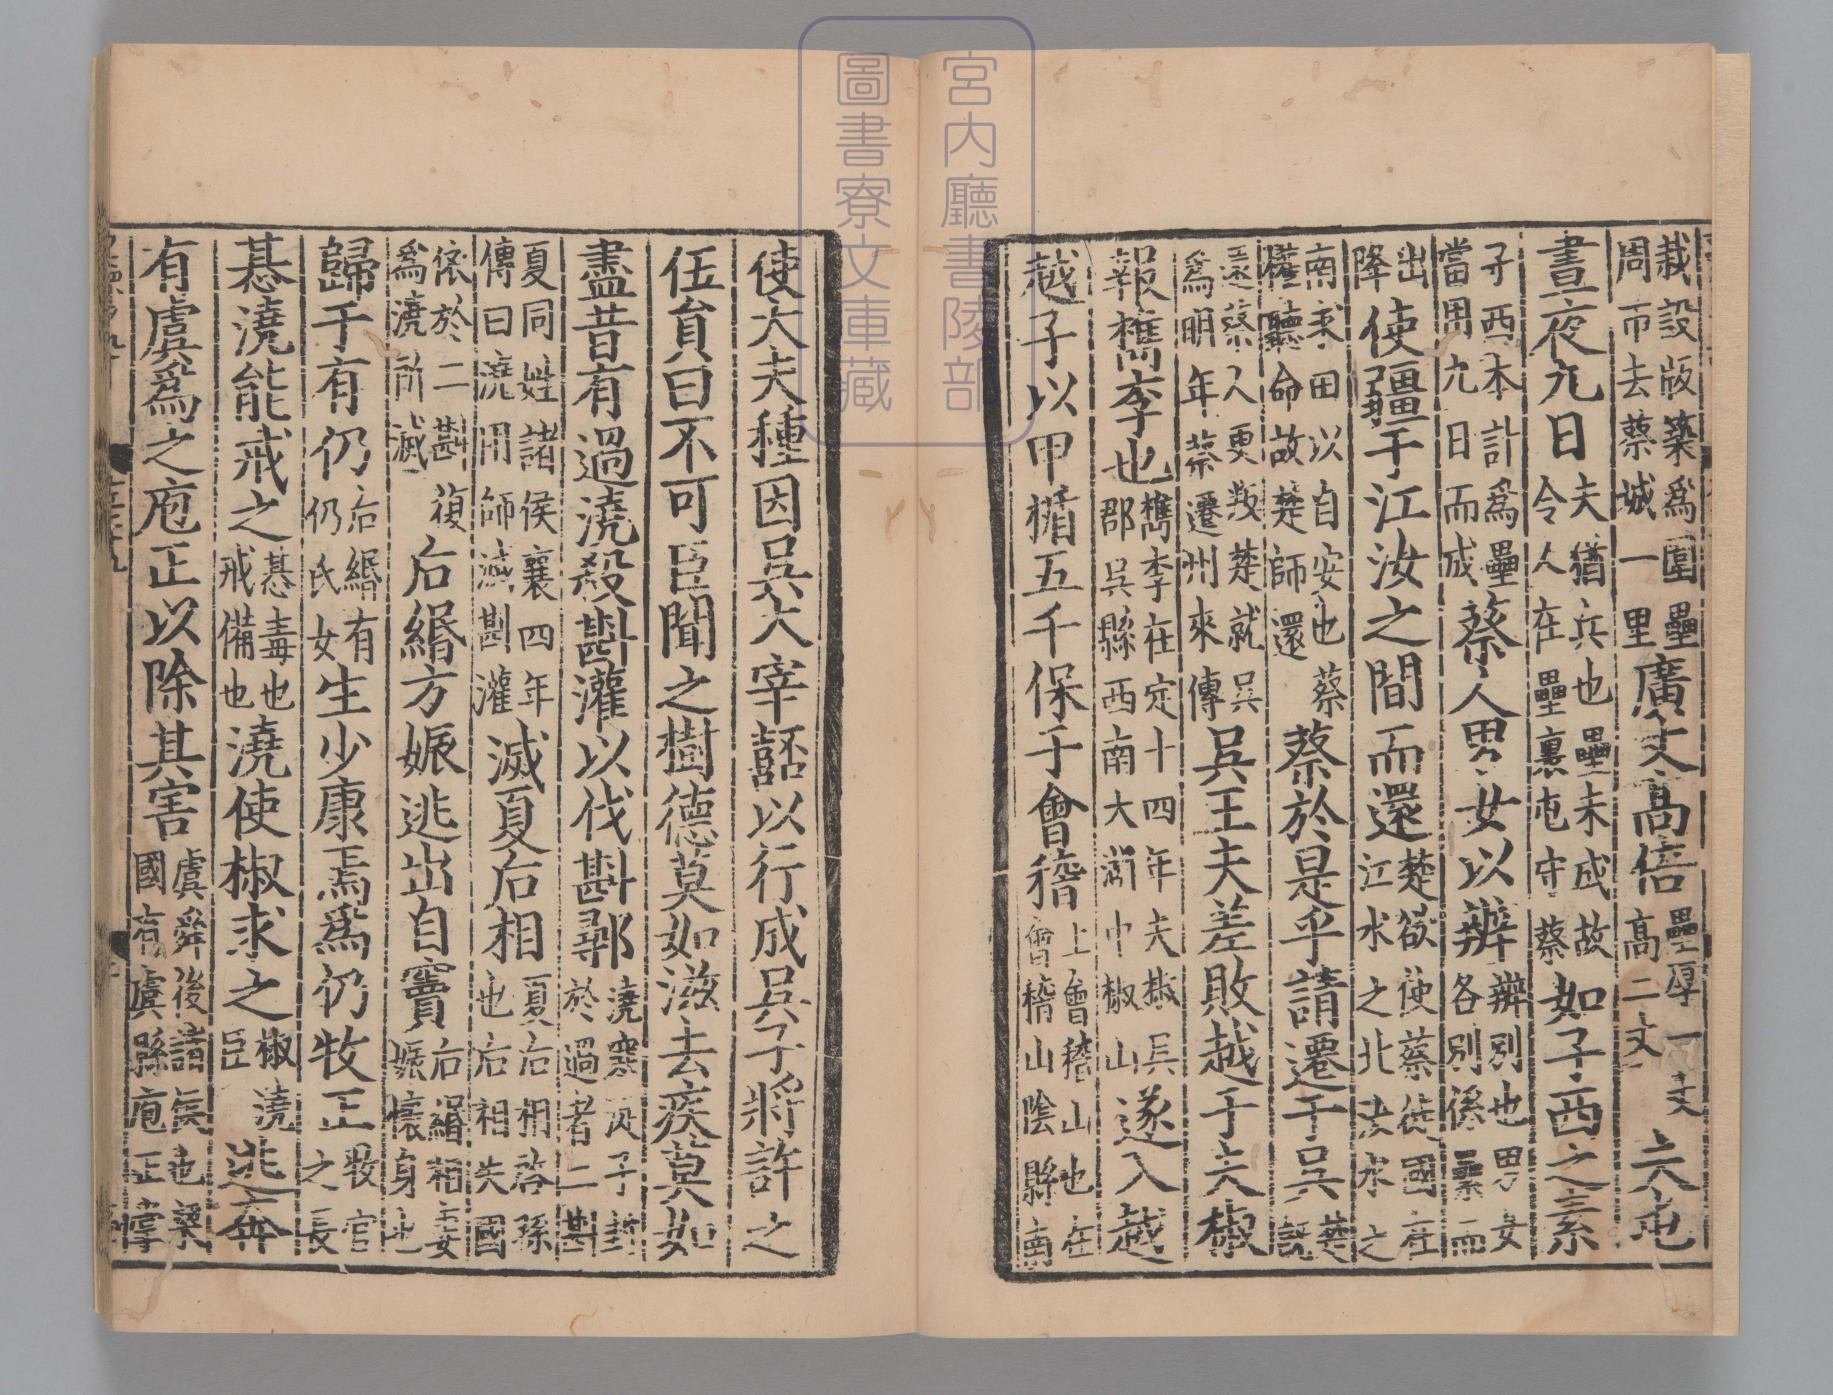 栽設版築爲圍壘周帀去蔡城一里廣丈高倍壘厚一丈高二丈夫屯
晝夜九日夫猶兵也壘未成故令人在壘裏屯守蔡如子西之素
子西本計爲壘當用九日而成蔡人男女以辨辨別也男女各別係纍而
出降使疆于江汝之間而還楚欲使蔡徙國在江水之北汝水之
南求田以自安也蔡權聽命故楚師還蔡於是乎請遷于吳楚旣
還蔡人更叛楚就吳爲明年蔡遷州來傳吳王夫差敗越于夫椒
報檇李也檇李在定十四年夫椒吳郡吳縣西南大湖中椒山遂入越
越子以甲楯五千保于會稽上會稽山也在會稽山陰縣南
使大夫種因吳大宰嚭以行成吳子將許之
伍員曰不可臣聞之樹德莫如滋去疾莫如
盡昔有過澆殺斟灌以伐斟鄩澆寒浞子封於過者二斟
夏同姓諸侯襄四年傳曰澆用師滅斟灌滅夏后相夏后相啓孫也后相失國
依於二斟復爲澆所滅后緡方娠逃出自竇后緡相妻娠懷身也
歸于有仍后緡有仍氏女生少康焉爲仍牧正牧官之長
惎澆能戒之惎毒也戒備也澆使椒求之椒澆臣逃奔
有虞爲之庖正以除其害虞舜後諸侯也梁國有虞縣庖正掌
宮内廳書陵部
圖書寮文庫藏